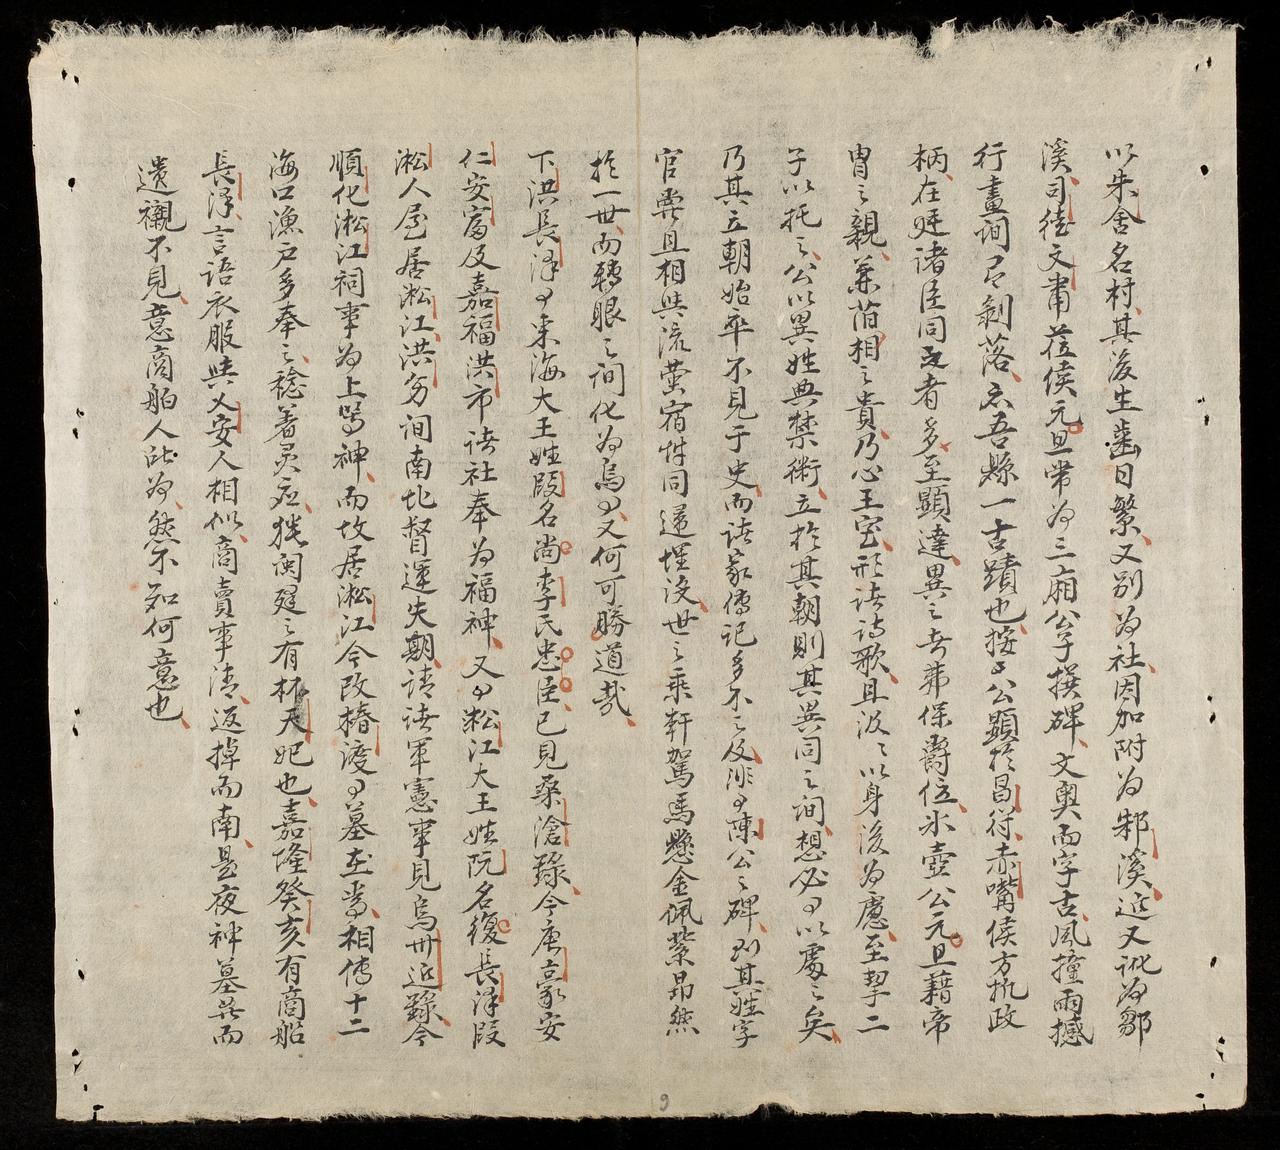 以朱舍名村其後生齒日繁又別為社因加附為邾溪近又訛為鄒
溪司徒文肅莅侯元旦常為三廂公子撰碑文奧而字古風撞雨撼
行畫間有剝落亦吾縣一古蹟也按公顯於昌符赤嘴侯方執政
柄在廷諸臣同者多至顯達異之者弗保爵位冰壺公元旦藉帝
胄之親兼首相之貴乃心王室形諸詩歌且汲〻以身後為慮至挈二
子以托之公以異姓典禁衛立於其朝則其異同之間想必有以處之矣
乃其立朝始卒不見于史而諸家傳記多不之及非有陳公之碑則其姓字
官爵且相與流螢宿草同還埋沒世之乘軒駕馬懸金佩紫昂然
於一世而轉眼之間化為烏有又何可勝道哉
下洪長津有東海大王姓段名尚李氏忠臣已見桑滄錄今唐豪安
仁安富及嘉福洪市諸社奉為福神又有淞江大王姓阮名復長津段
淞人屋居淞江洪労間南北督運失期請諸軍憲事見烏州近錄今
順化淞江祠事為上等神而故居淞江今改椿渡有墓在焉相傳十二
海口漁戶多奉之稔著灵应猶閩廷之有林天妃也嘉隆癸亥有商船
長津言語衣服與乂安人相似商賣事清返掉而南是夜神墓發而
遺襯不見意商舶人所為然不知何意也